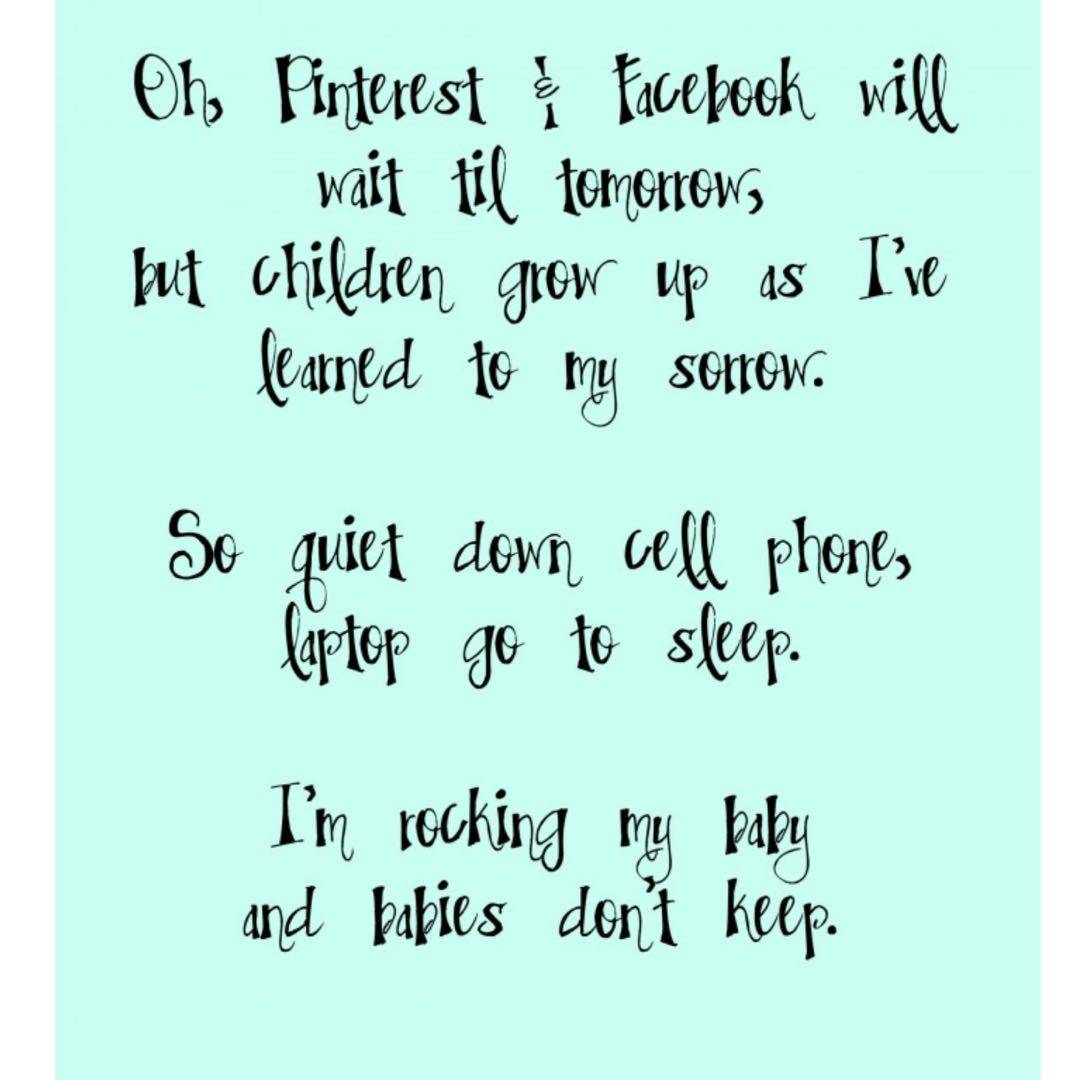 Oh, Pinterest & Facebook will
wait til tomorrow,
but children grow up as I've
learned to my sorrow.
So quiet down cell phone,
laptop go to sleep.
I'm rocking my baby
and babies don't keep.